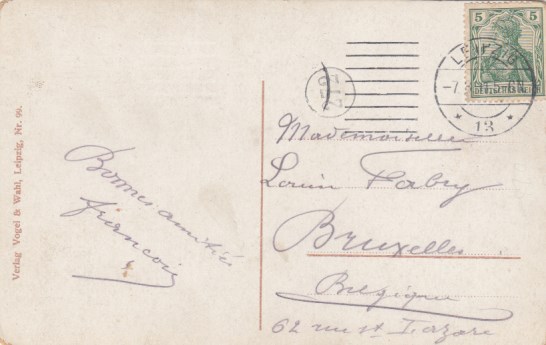 5 5
DEUTSCHES REICH
LEIPZIG
* 13 *
Mademoiselle
Fabry
Bruxelles
Belgique
62 rue st Lazare
Bonnes amitiés
François
Verlag Vogel & Wahl, Leipzig, Nr. 99.